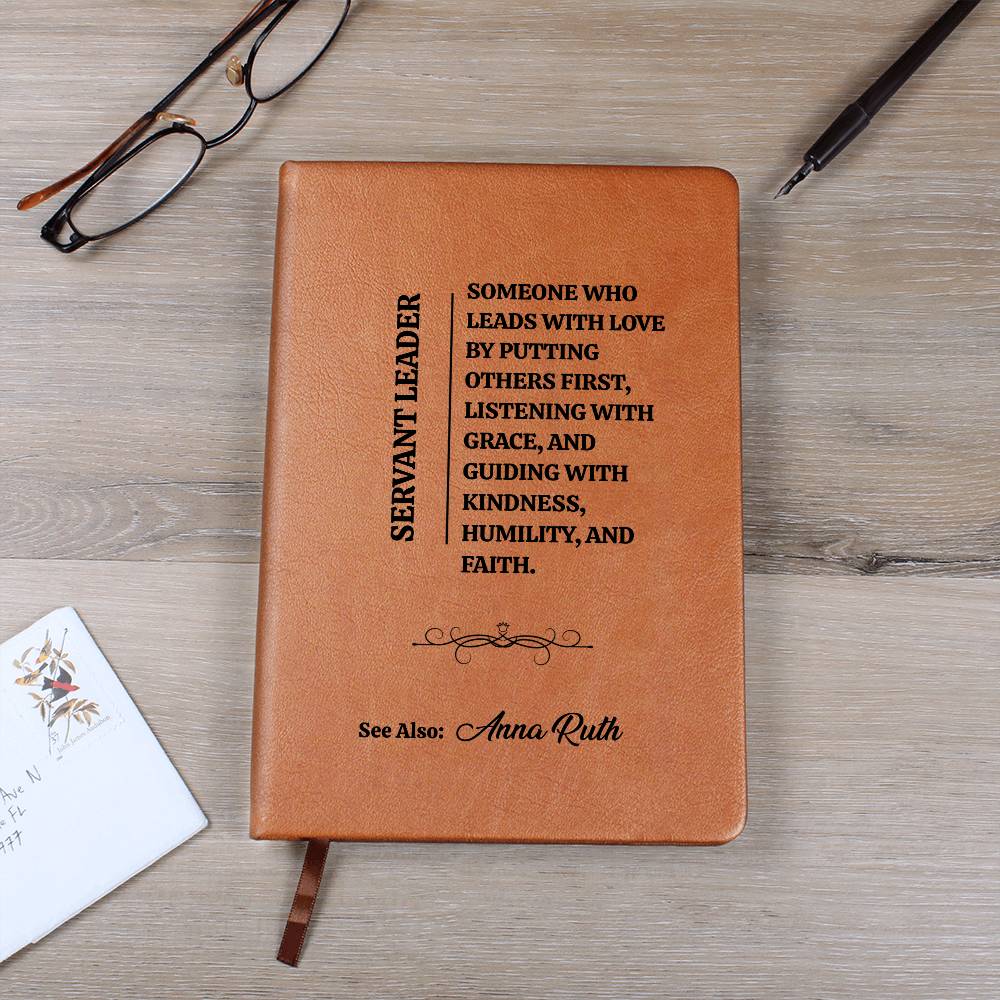 SERVANT LEADER
SOMEONE WHO
LEADS WITH LOVE
BY PUTTING
OTHERS FIRST,
LISTENING WITH
GRACE, AND
GUIDING WITH
KINDNESS,
HUMILITY, AND
FAITH.
See Also: Anna Ruth
37
John James Audubon
Ave N
FL
977